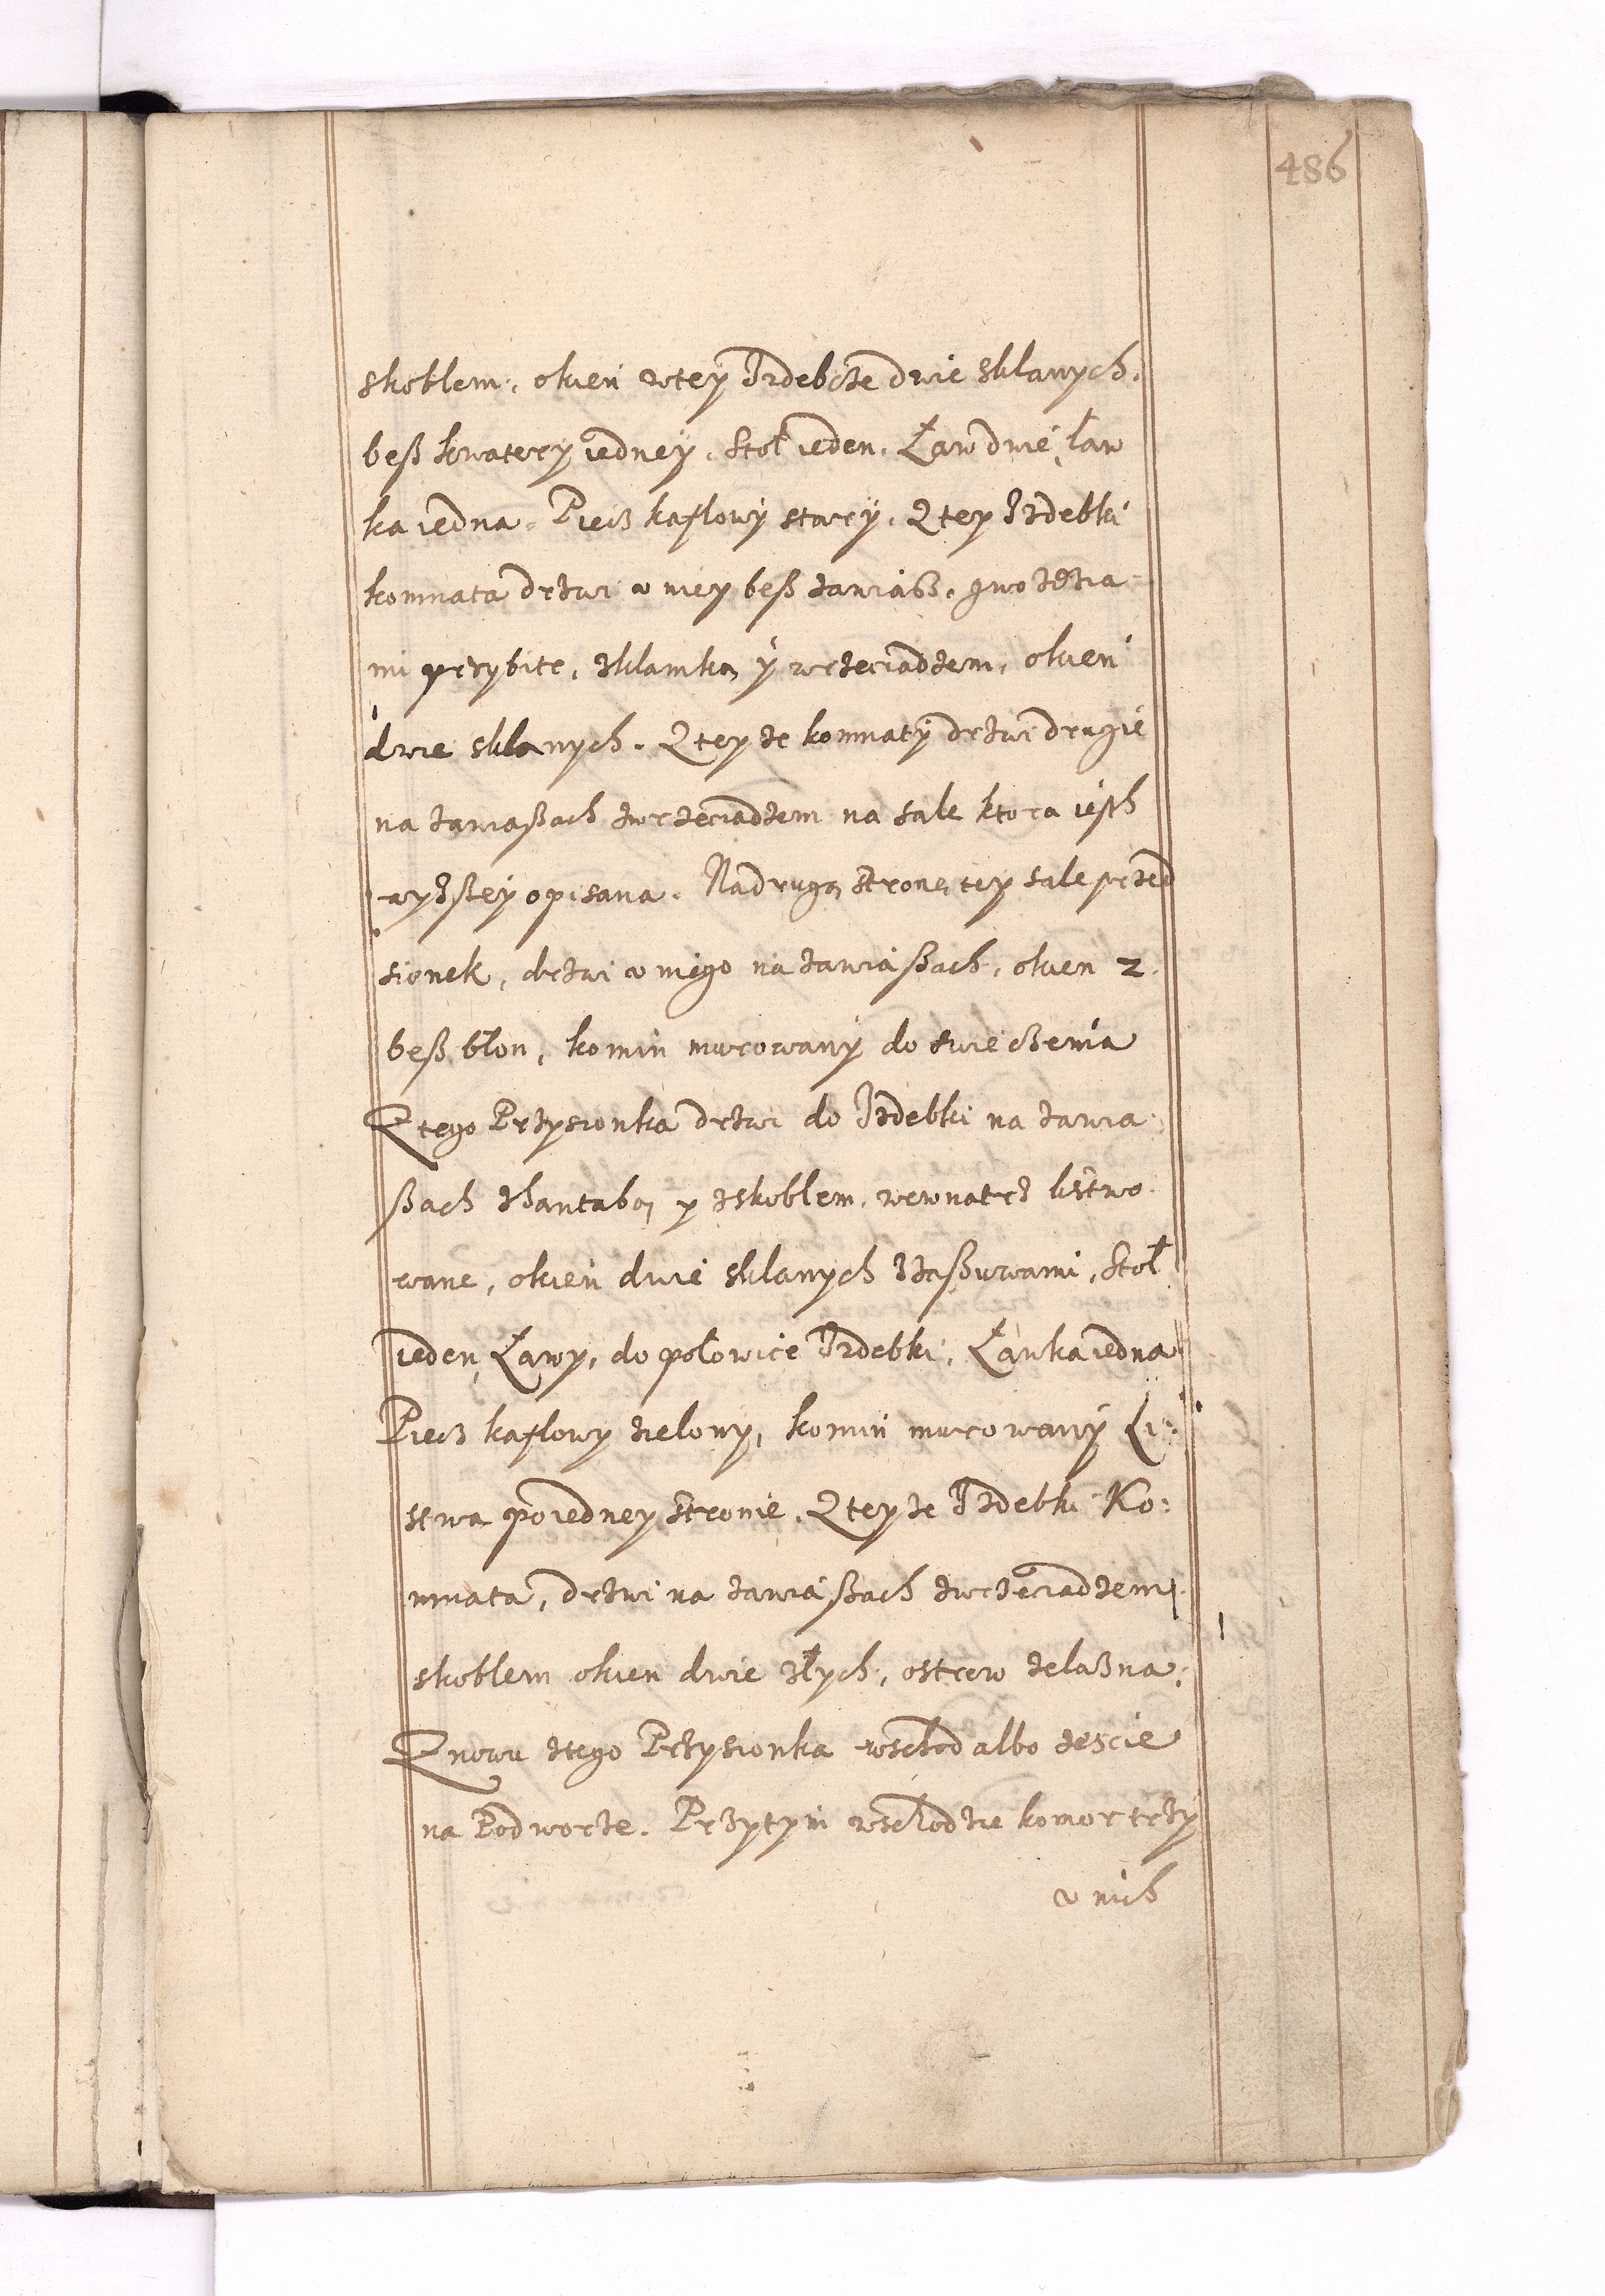 486
skoblem, okien wtey Izdebcze dwie sklanych.
beß kwatery iedney. Stoł ieden. Ław dwie, ław
ka iedna. Piecz kaflowy stary. Ztey Izdebki
komnata drzwi v niey beß zawiasz. gwozdzia-
mi przybite, zklamką y wrzeciadzem, okien
dwie sklanych. Zteyze komnaty drzwi drugie
na zawiaßach zwrzeciadzem na sale ktora iesth
wyzßey opisana. Nadrugą stronę tey sale przed
sionek, drzwi v niego na zawiaßach, okien 2.
beß błon, komin murowany do swieczenia
Ztego Przysionka drzwi do Izdebki na zawia-
ßach zhantabą y zskoblem, wewnatrz listwo-
wane, okien dwie sklanych zzaßuwami, Stoł
ieden, Ławy, do połowice Izdebki, Ławka iedna
Piecz kaflowy zielony, komin murowany Li-
stwa poiedney stronie. Zteyze Izdebki Ko:
mnata, drzwi na zawiaßach zwrzeciadzem
skoblem okien dwie złych, ostrew zelazna.
Znowu ztego Przysionka wschod albo zescie
na Podworze. Przytym wschodzie komor trzy
v nich